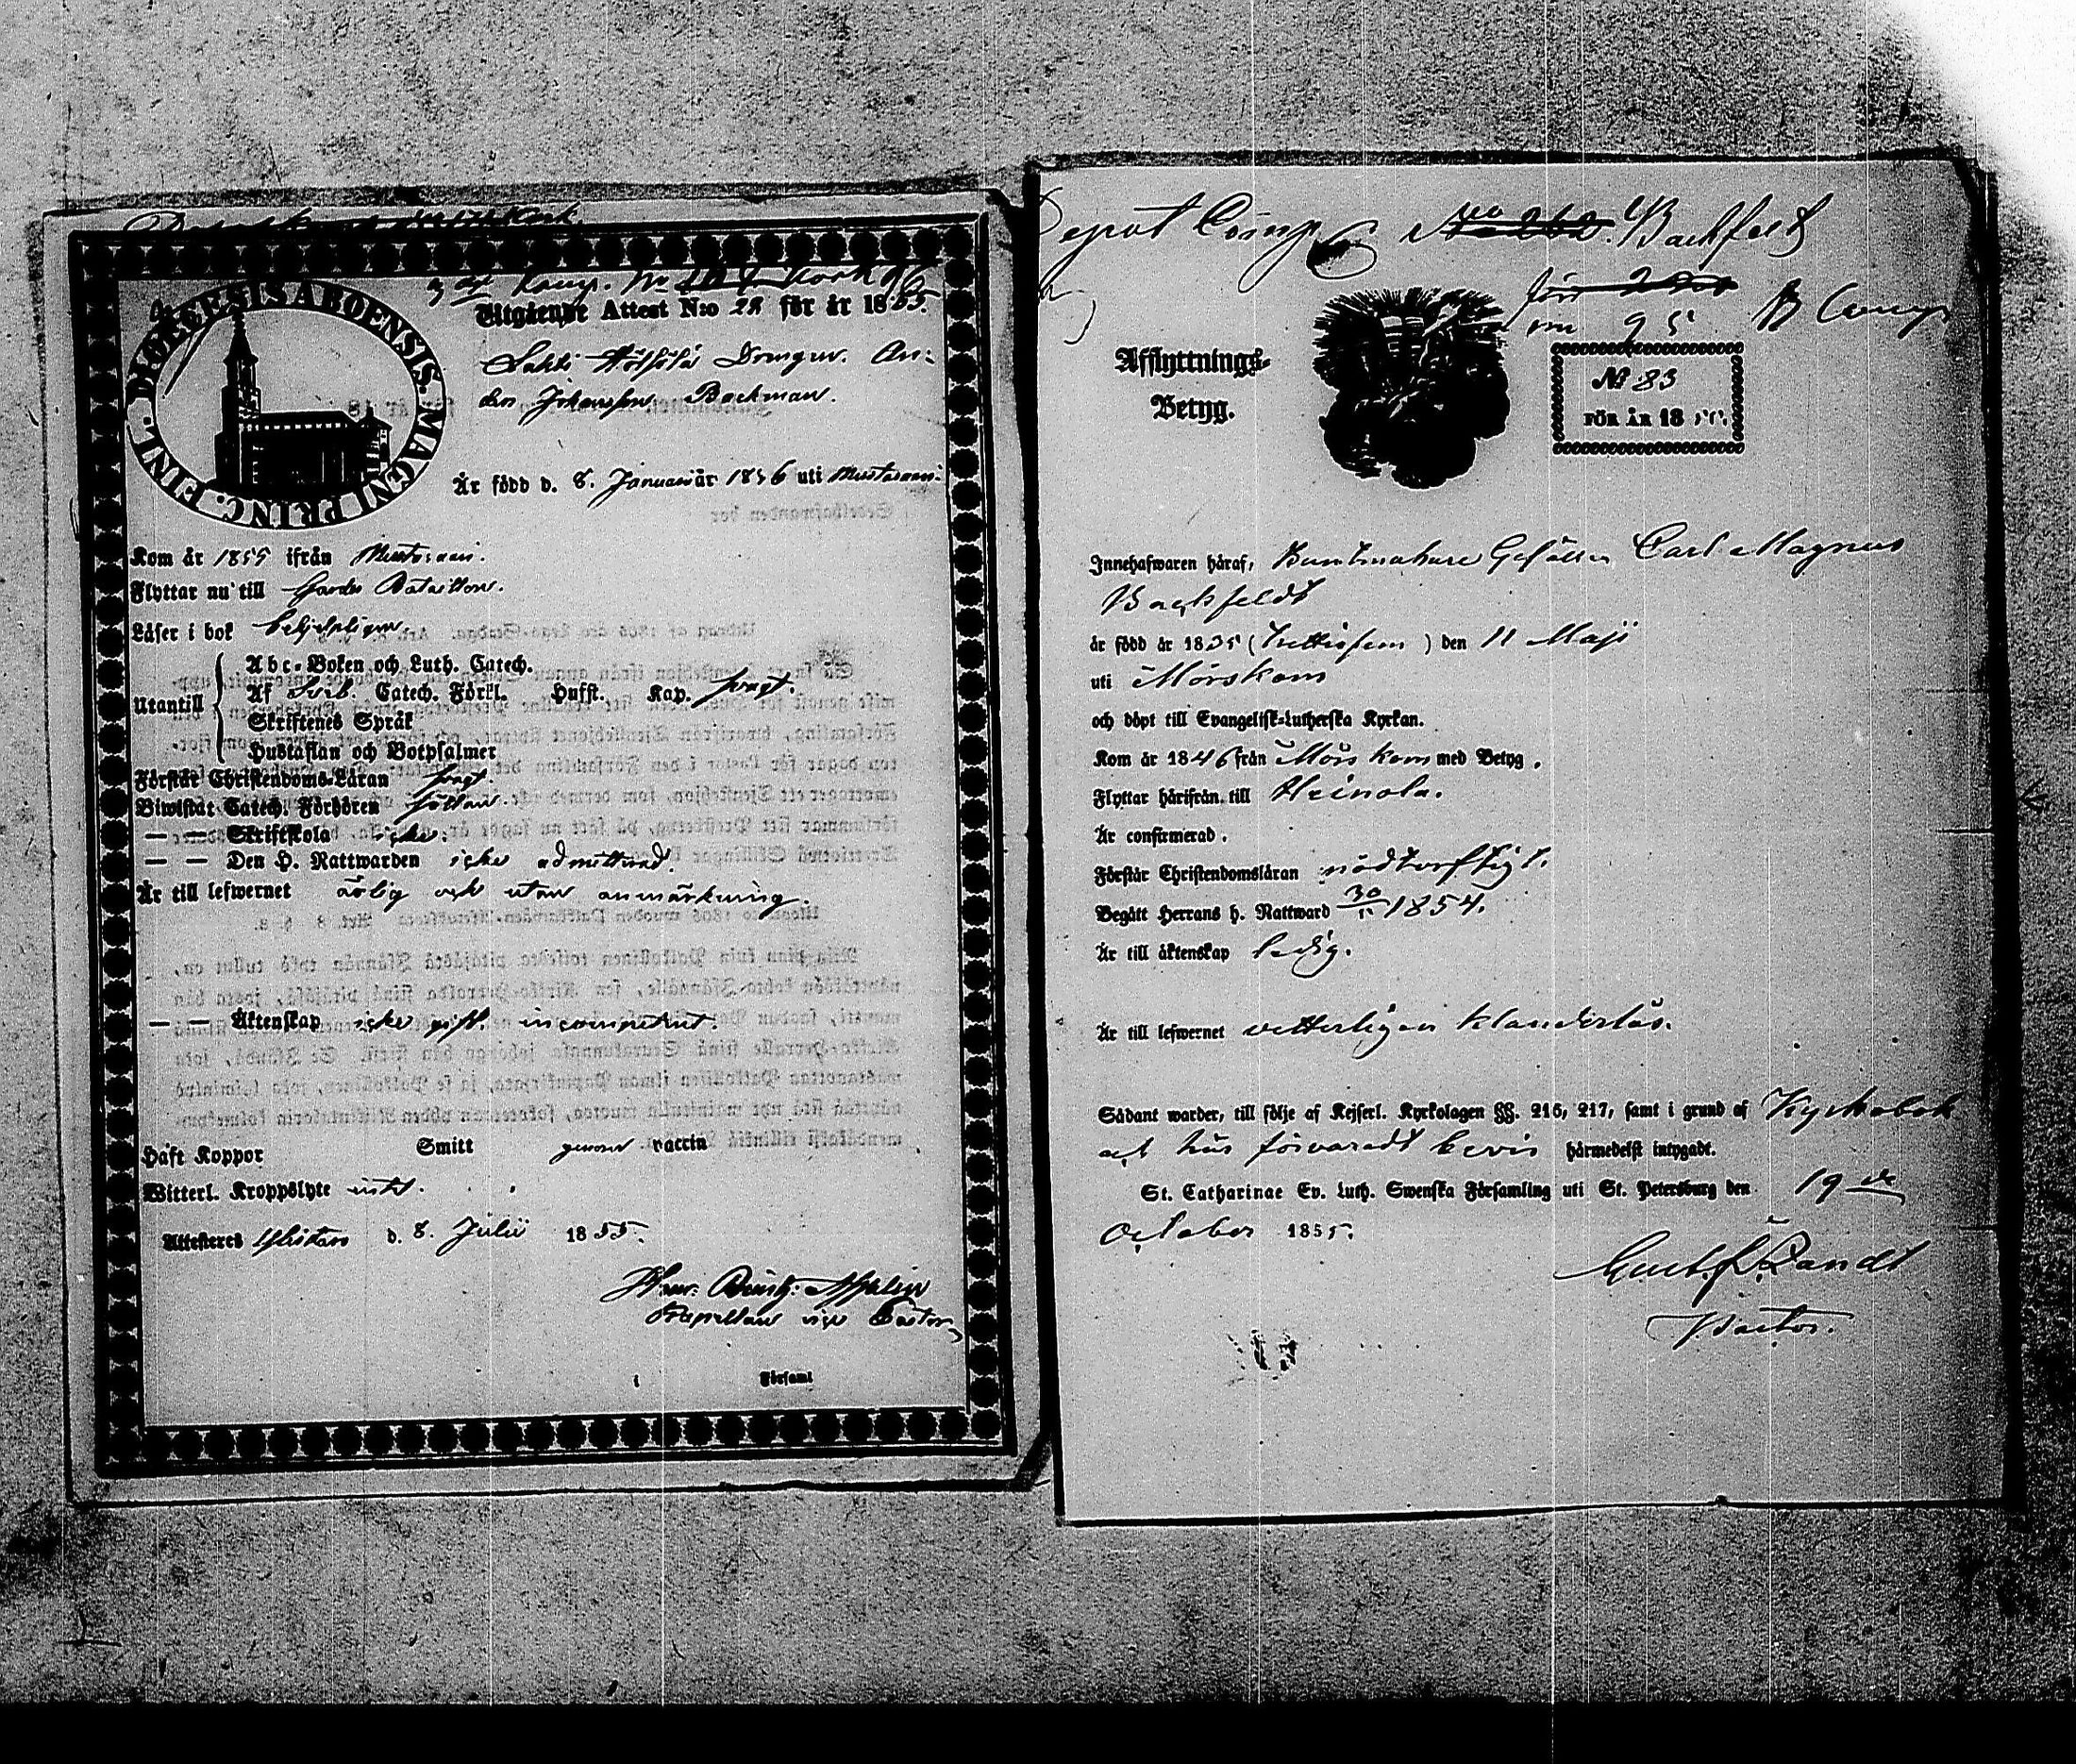 Utgående Attest N:o 28 för år 1855.
DIOECESIS ABOENSIS. MAGNI PRINC. FINL.
Drengen An-
ders Johansson Backman.
Är född d. 8. Januari år 1836 uti
Kom år 1855 ifrån
Flyttar nu till Gardes Bataillon.
Läser i bok
Utantill
Abc-Boken och Luth. Catech.
Af Catech. Förkl. Husst. Kap. svagt.
Skriftenes Språk
Hustaflan och Botpsalmer
Förstår Christendoms-Läran svagt.
Biwistat Catech. Förhören sällan
— — Skriftskola icke.
— — Den H. Nattwarden icke admitterad.
Är till lefwernet ärlig och utan anmärkning.
— — Äktenskap icke gift. incompetent.
Haft Koppor Smitt genom vaccin
Witterl. Kroppslyte intet.
Attesteras d. 8. Julii 1855.
Kapellan vice Pastor
i Församl
Depot Comp Backfelt
95 B Comp
Afflyttnings-
Betyg.
№ 83
FÖR ÅR 1855.
Innehafwaren häraf, Buntmakare Gesällen Carl Magnus
Backfeldt
är född år 1835 (trettiofem) den 11 Maji
uti Mörskom
och döpt till Evangelisk-Lutherska Kyrkan.
Kom år 1846 från Mörskom med Betyg.
Flyttar härifrån till Heinola.
Är confirmerad.
Förstår Christendomsläran nödtorftigt.
Begått Herrans h. Nattward 1854.
Är till äktenskap ledig.
Är till lefwernet vetterligen klanderlös.
Sådant warder, till följe af Kejserl. Kyrkolagen §§. 216, 217, samt i grund af Kyrkobok
och här förvaradt bevis härmedelst intygadt.
St. Catharinae Ev. Luth. Swenska Församling uti St. Petersburg den 19de
October 1855.
Pastor.